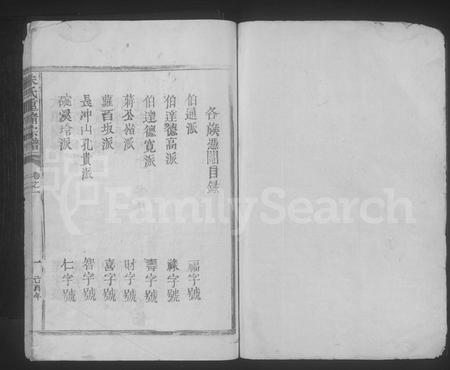 各族憑圖目錄
伯通派 一福字號
伯達德高派 祿字號
伯達德寬派 壽字號
蔣公嶺派 財字號
蘿西坂派 喜字號
長冲山孔貴派 智字號
硫溪玲派 仁字號
朱氏重脩宗譜 卷之一 一
FamilySearch